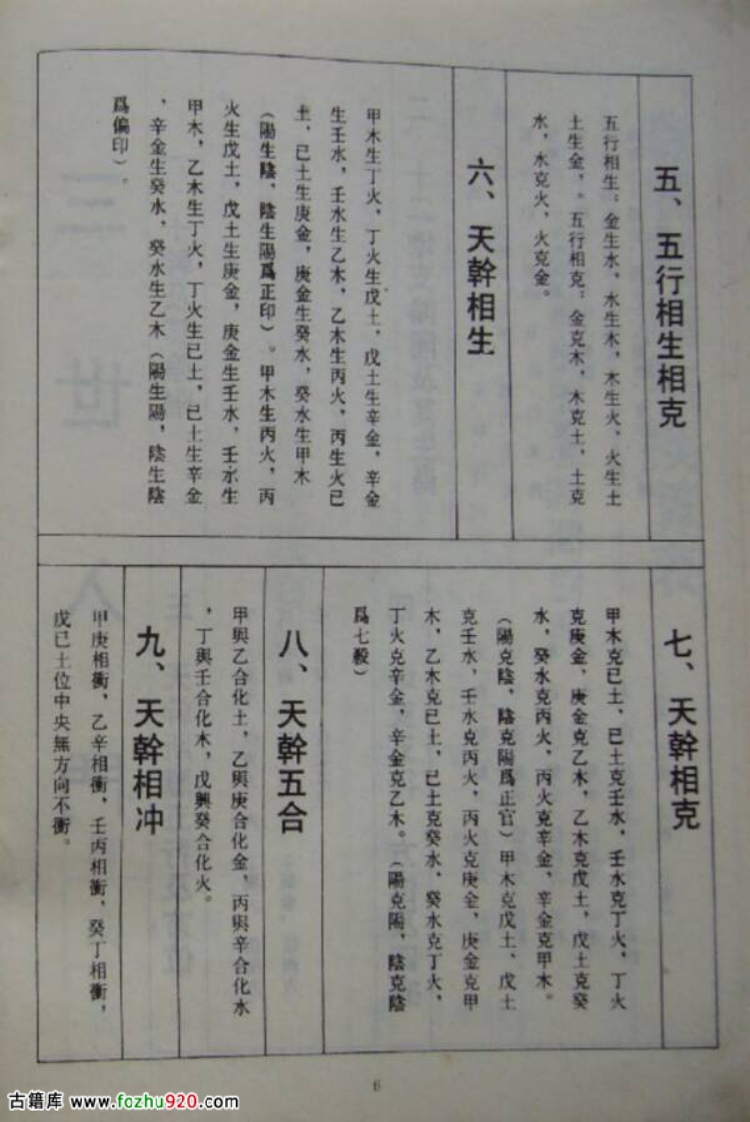 五、五行相生相克
五行相生：金生水，水生木，木生火，火生土
土生金，。五行相克：金克木，木克土，土克
水，水克火，火克金。
六、天幹相生
甲木生丁火，丁火生戊土，戊土生辛金，辛金
生壬水，壬水生乙木，乙木生丙火，丙生火已
土，已土生庚金，庚金生癸水，癸水生甲木
（陽生陰，陰生陽爲正印）。甲木生丙火，丙
火生戊土，戊土生庚金，庚金生壬水，壬水生
甲木，乙木生丁火，丁火生已土，已土生辛金
，辛金生癸水，癸水生乙木（陽生陽，陰生陰
爲偏印）。
七、天幹相克
甲木克已土，已土克壬水，壬水克丁火，丁火
克庚金，庚金克乙木，乙木克戊土，戊土克癸
水，癸水克丙火，丙火克辛金，辛金克甲木。
（陽克陰，陰克陽爲正官）甲木克戊土，戊土
克壬水，壬水克丙火，丙火克庚金，庚金克甲
木，乙木克已土，已土克癸水，癸水克丁火，
丁火克辛金，辛金克乙木。（陽克陽，陰克陰
爲七殺）
八、天幹五合
甲與乙合化土，乙與庚合化金，丙與辛合化水
，丁與壬合化木，戊興癸合化火。
九、天幹相冲
甲庚相衝，乙辛相衝，壬丙相衝，癸丁相衝，
戊已土位中央無方向不衝。
6
古籍库 www.fozhu920.com